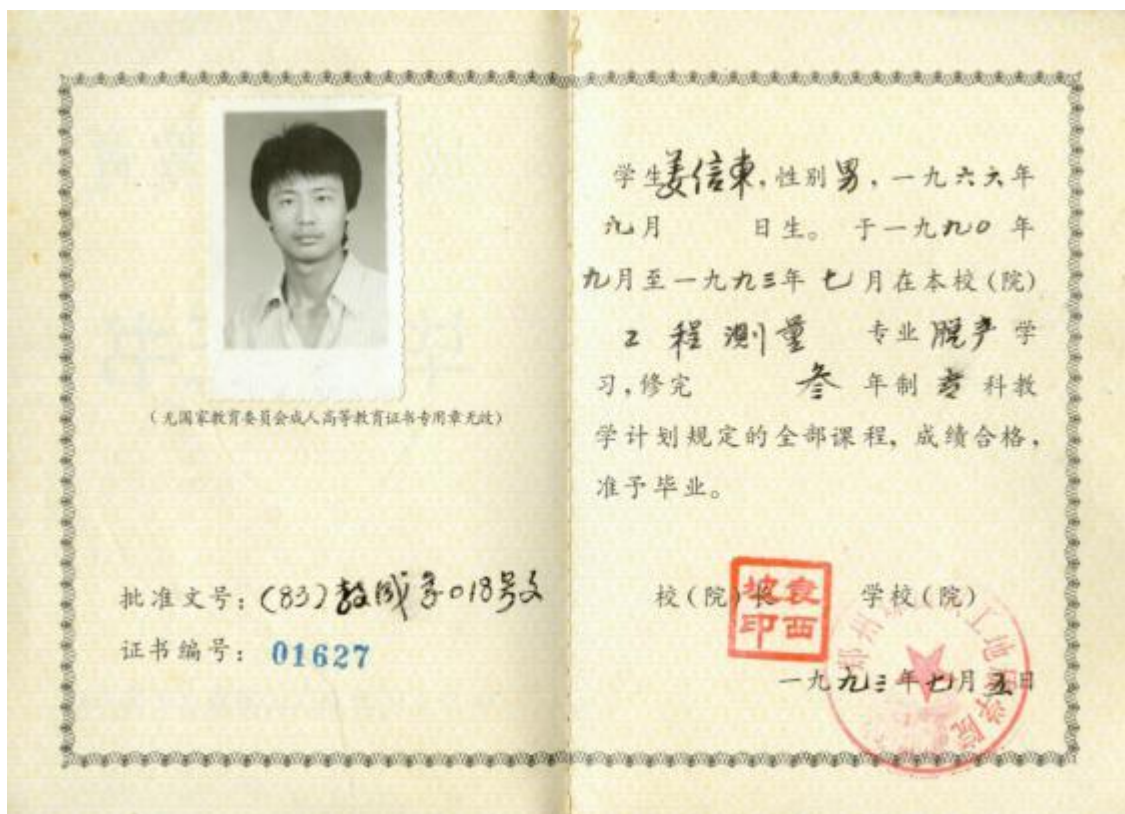 (无国家教育委员会成人高等教育证书专用章无效)
批准文号:(83)教成字018号文
证书编号: 01627
学生姜信東,性别男,一九六六年
九月 日生。 于一九九0 年
九月至一九九三年 七月在本校(院)
工程测量 专业脱产学
习,修完 叁 年制 专科教
学计划规定的全部课程,成绩合格,
准予毕业。
校(院)长 学校(院)
袁西坡印
郑州 工地 学院
一九九三年七月五日